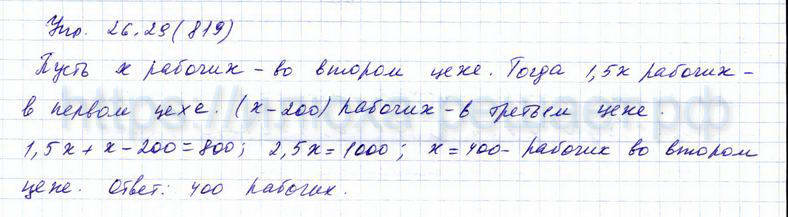 Упр. 26.29(819)
Пусть x рабочих - во втором цехе. Тогда 1,5x рабочих -
в первом цехе. (x-200) рабочих - в третьем цехе.
1,5x + x - 200 = 800; 2,5x = 1000; x = 400 - рабочих во втором
цехе. Ответ: 400 рабочих.